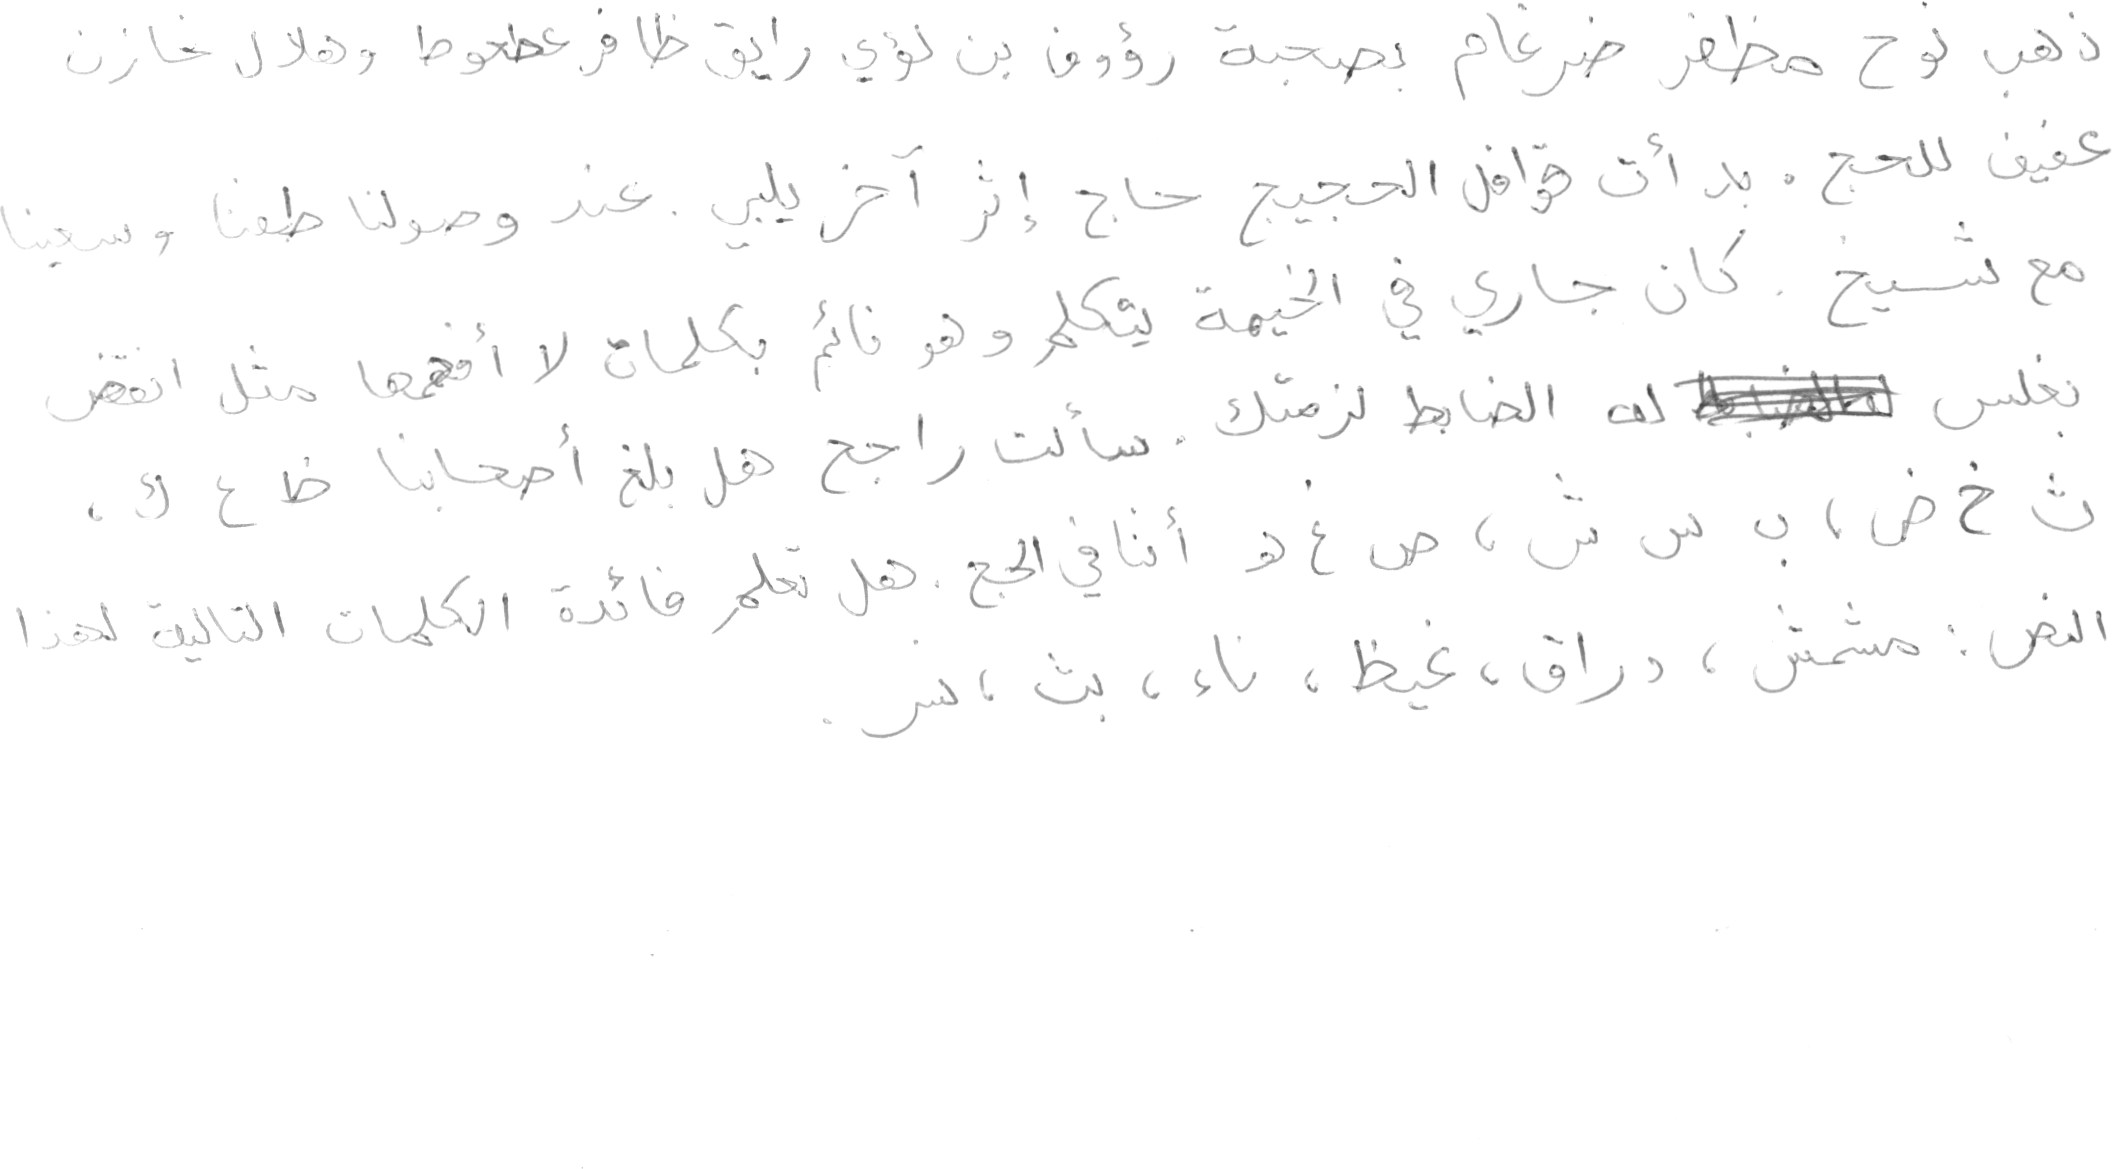 ذهب نوح مظفر ضرغام بصحبة رؤوف بن لؤي رايق ظافر عطعوط وهلال خازن
عفيف للحج . بدأت قوافل الحجيج حاج إثر آخر يلبي . عند وصولنا طفنا وسعينا
مع شيخ . كان جاري في الخيمة يتكلم وهو نائم بكلمات لا أفهمها مثل انقض
بغلس له الضابط لزمتك . سألت راجح هل بلغ أصحابنا ظ ع ك ،
ث خ ض ، ب س ش ، ص غ ه أننا في الحج . هل تعلم فائدة الكلمات التالية لهذا
النص : مشمش ، دراق ، غيظ ، ناء ، بث ، نس .